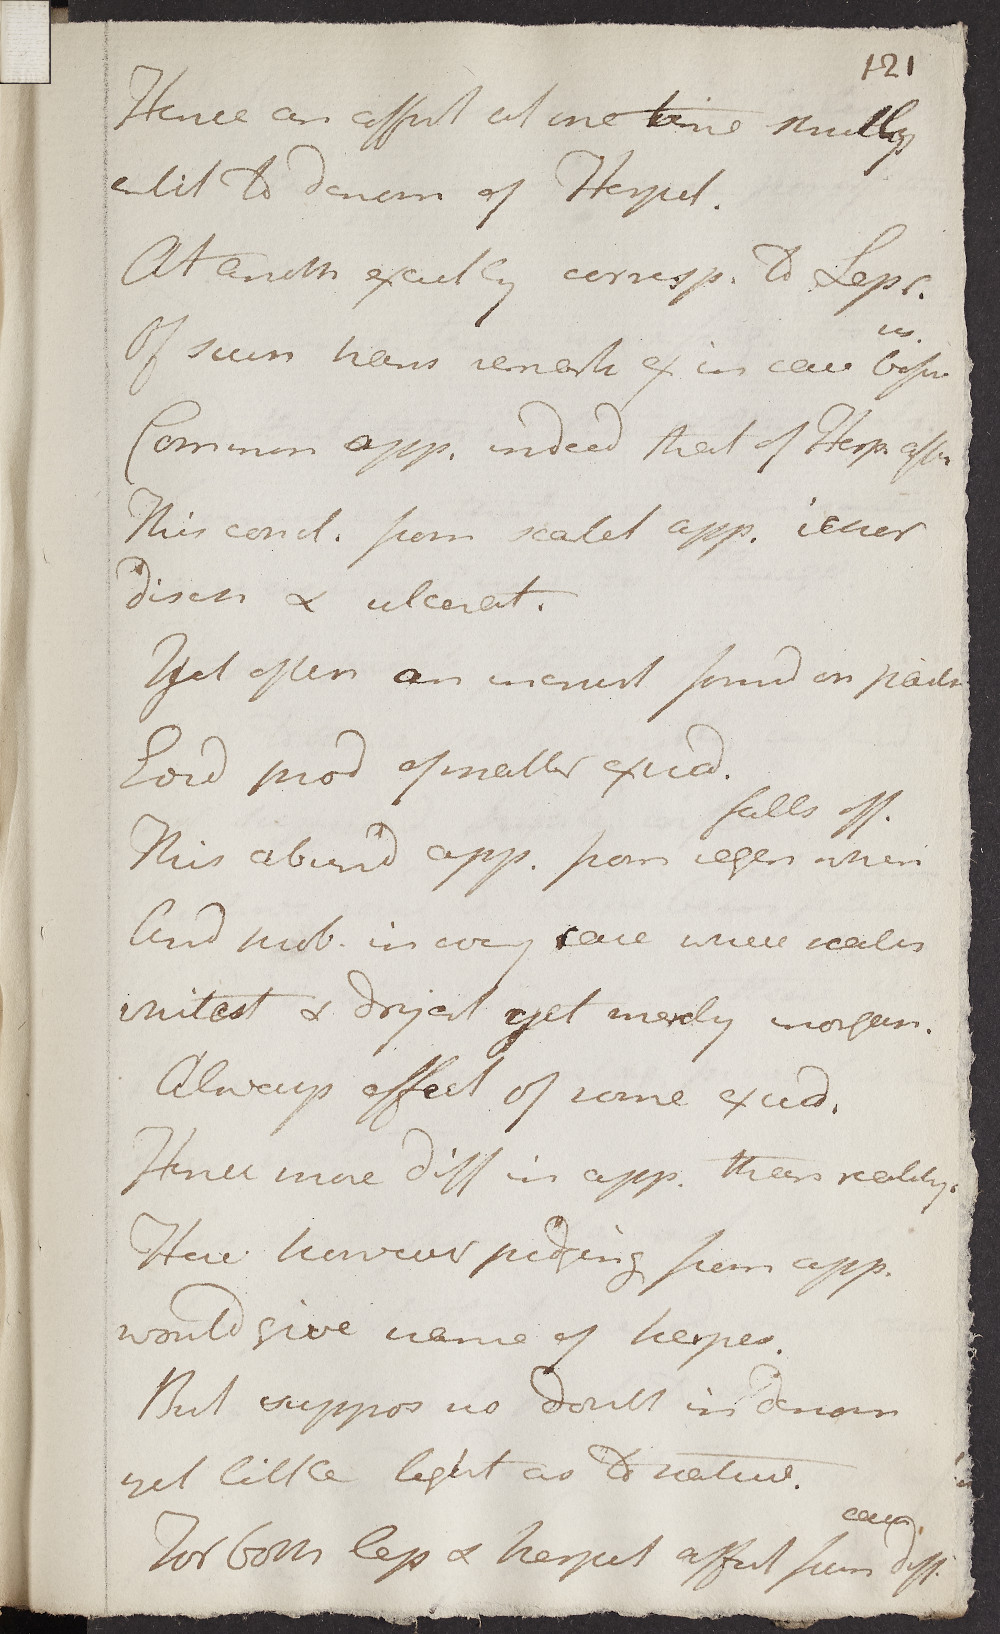 121
Hence an affect at one time strictly
entit to denom of Herpet.
At anoth exactly corresp. to Lepr.
Of such have remark ex in case befor us.
Common app. indeed that of Herp. affec
This concl. from scabs app. ichor
disch & ulcerat.
Yet often an incrust found on parts
Lord prod of matter exud.
This abund app. from regen when falls off.
And prob. in every case where scales
whitest & dryest yet merely inorgan.
Always effect of some exud.
Hence more diff in app. than reality.
Here however judging from app.
would give name of herpes.
But suppos no doubt in denom
yet little light as to nature.
For both lep & herpet affect from diff. caus.